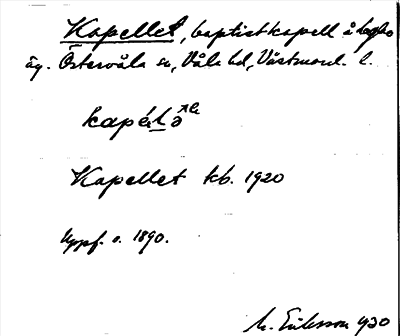 Kapellet, baptistkapell å
äg. Östervåla sn, Våla hd, Västmanl. l.
Kapellet kb. 1920
Uppf. o. 1890.
Eriksson 1930